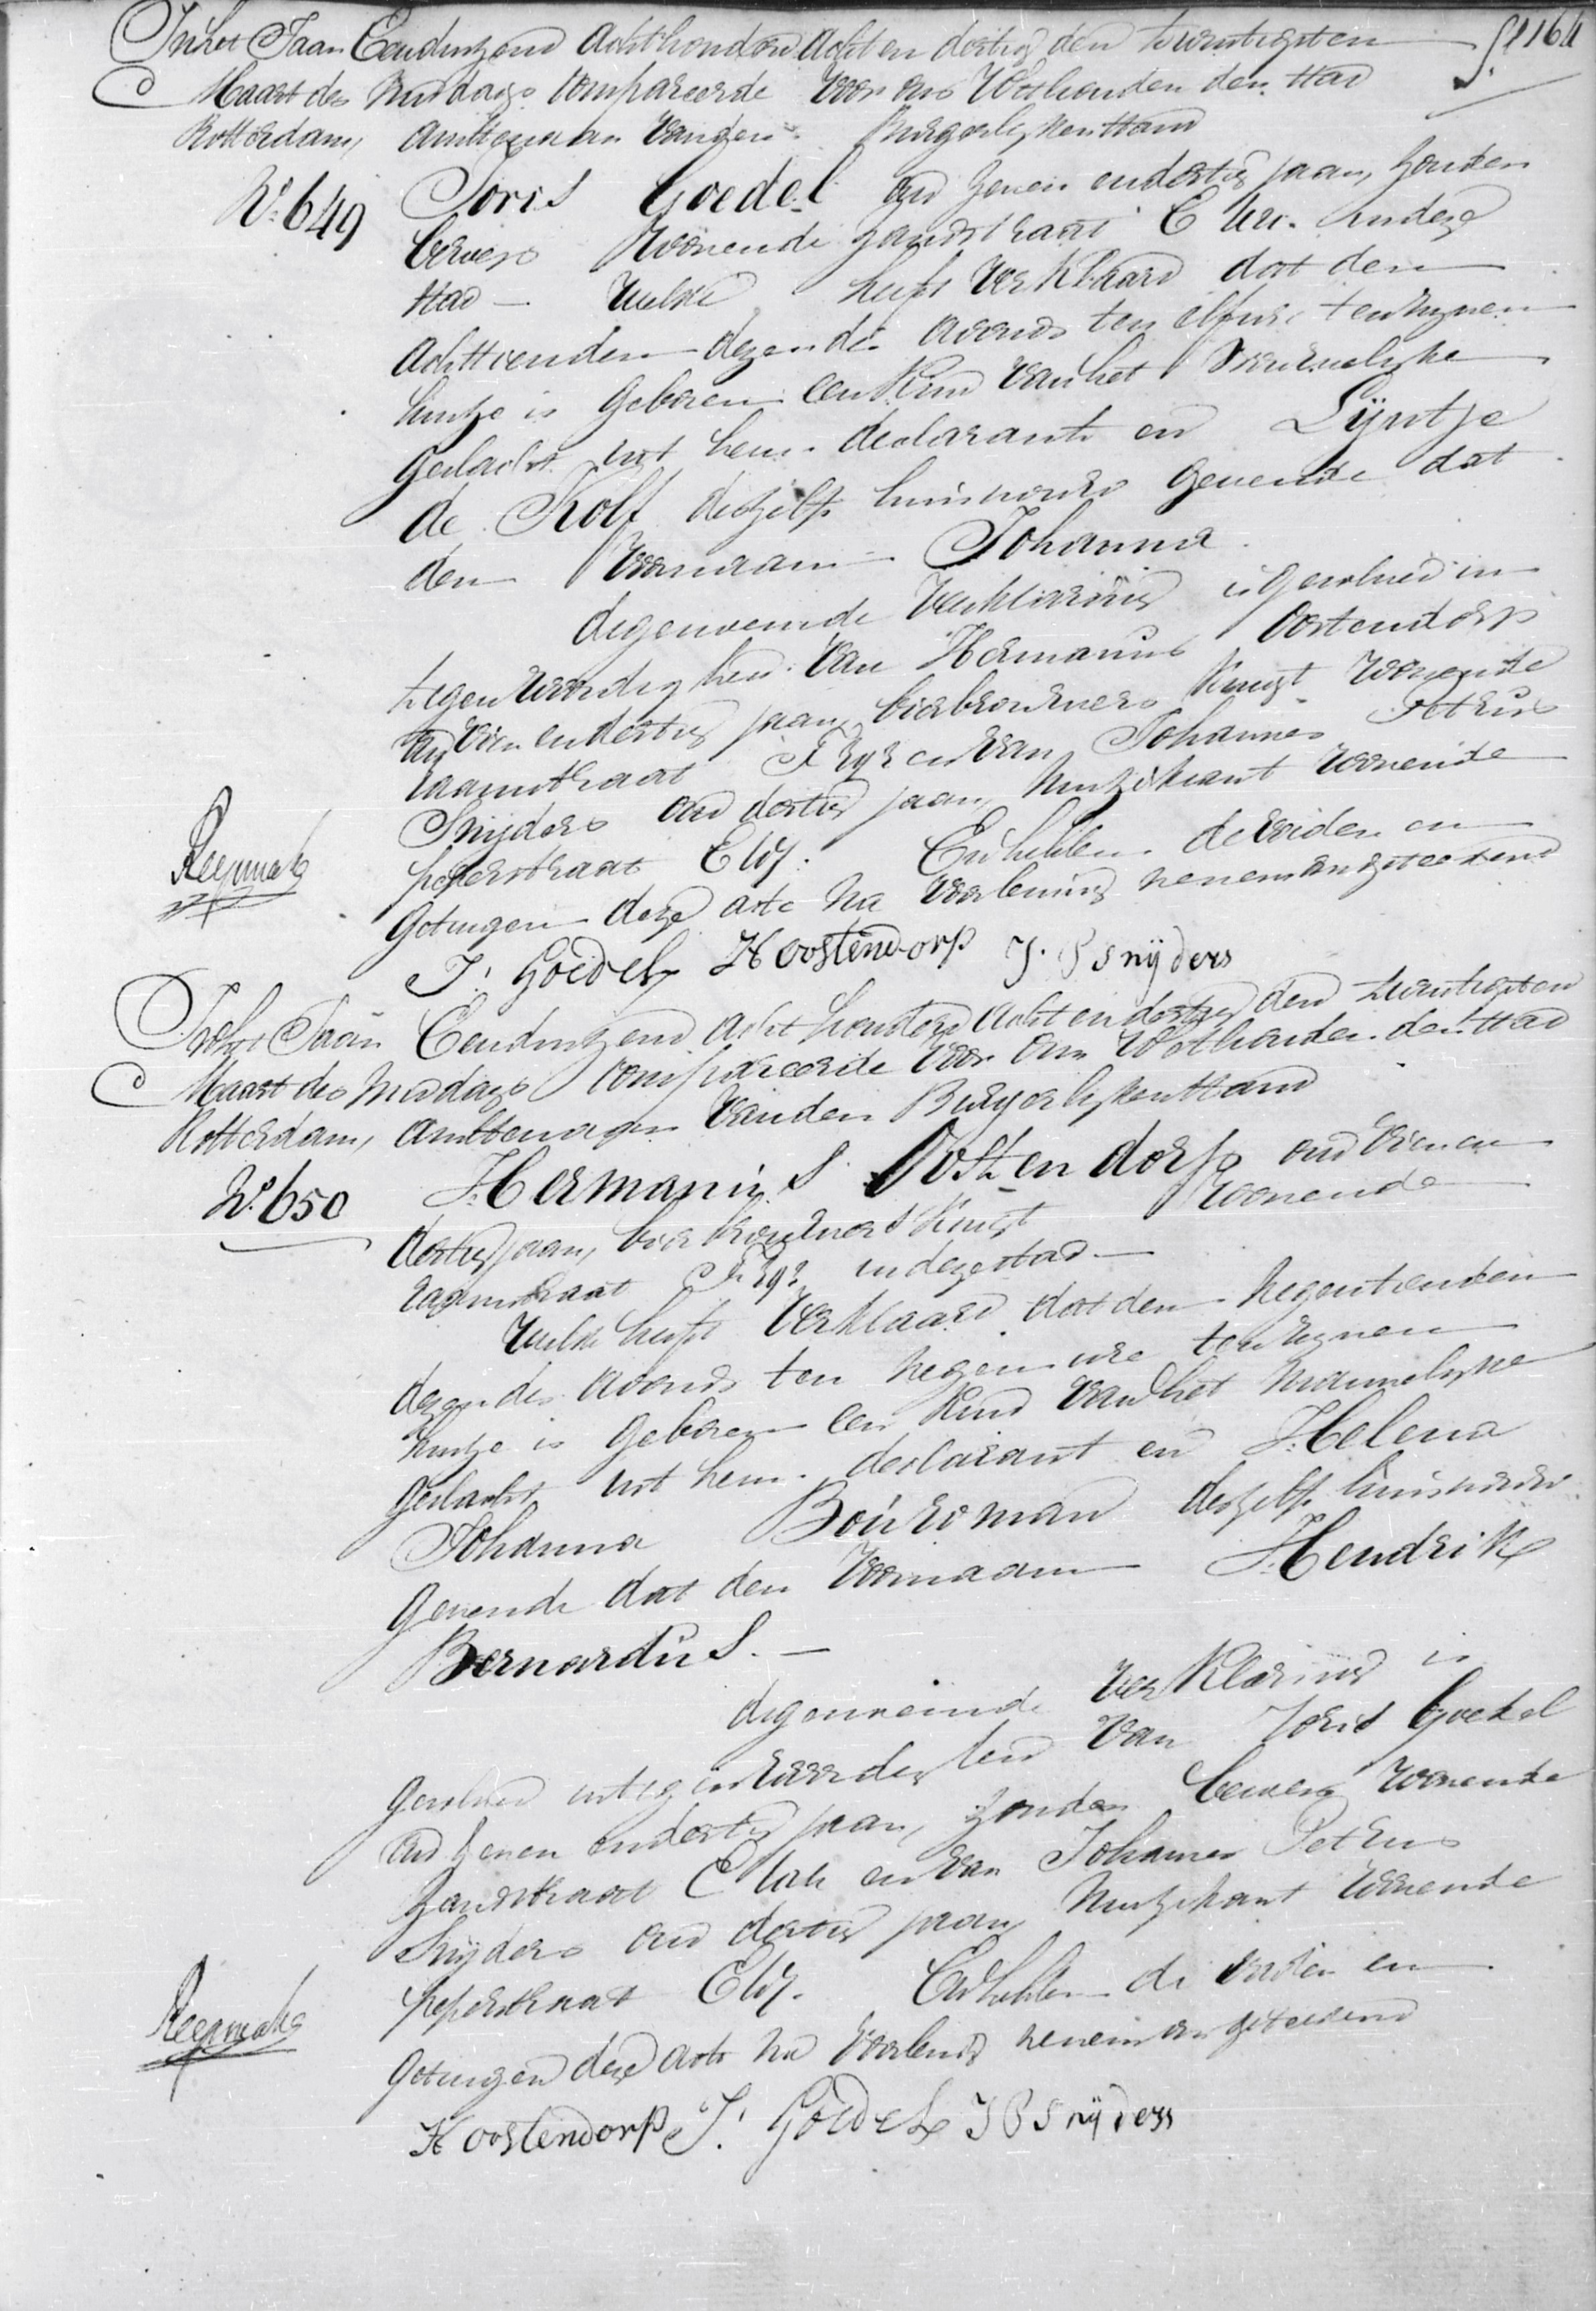 In het Jaar Eenduizend achthonderd acht en dertig den twintigsten fl 164
Maart des middags compareerde voor ons Wethouder der Stad
Rotterdam, ambtenaar van den Burgerlyken Stand
No. 649 Joris Goedel oud zeven en dertig jaar, zonder
beroep woonende zandstraat C in deze
stad — welke heeft verklaard dat den
achttienden dezer des avonds ten elf ure ten zynen
huize is geboren een Kind van het Vrouwelyke
geslacht uit hem declarant en Lijntje
de Kolf deszelfs huisvrouw gevende dat
den Voornaam Johanna.
degenoemde verklaring is geschied in
tegenwoordigheid van Hermanus Oostendorp
oud vier en dertig jaar, bierbrouwers knegt woonende
raamstraat en van Johannes Petrus
Snijders oud dertig jaar, muzikant woonende
peperstraat En hebben de vader en
getuigen deze acte na voorlezing nevens ons geteekend
J. Goedel H oostendorp J. P Snijders
In het Jaar Eenduizend acht honderd acht en dertig den twintigsten
Maart des middags compareerde voor ons Wethouder der Stad
Rotterdam, ambtenaar van den Burgerlyken Stand
No. 650 Hermanus Oostendorp oud vier en
dertig jaar, bierbrouwers knegt woonende
raamstraat in deze stad —
welke heeft verklaard dat den negentienden
dezer des avonds ten negen ure ten zynen
huize is geboren een Kind van het mannelyke
geslacht uit hem declarant en Helena
Johanna Bouwman deszelfs huisvrouw
gevende dat den Voornaam Hendrik
Bernardus. —
degenoemde verklaring is
geschied in tegenwoordigheid van Joris Goedel
oud zeven en dertig jaar, zonder beroep woonende
zandstraat C en van Johannes Petrus
Snijders oud dertig jaar, muzikant woonende
peperstraat En hebben de vader en
getuigen deze acte na voorlezing nevens ons geteekend
H oostendorp J. Goedel J P Snijders